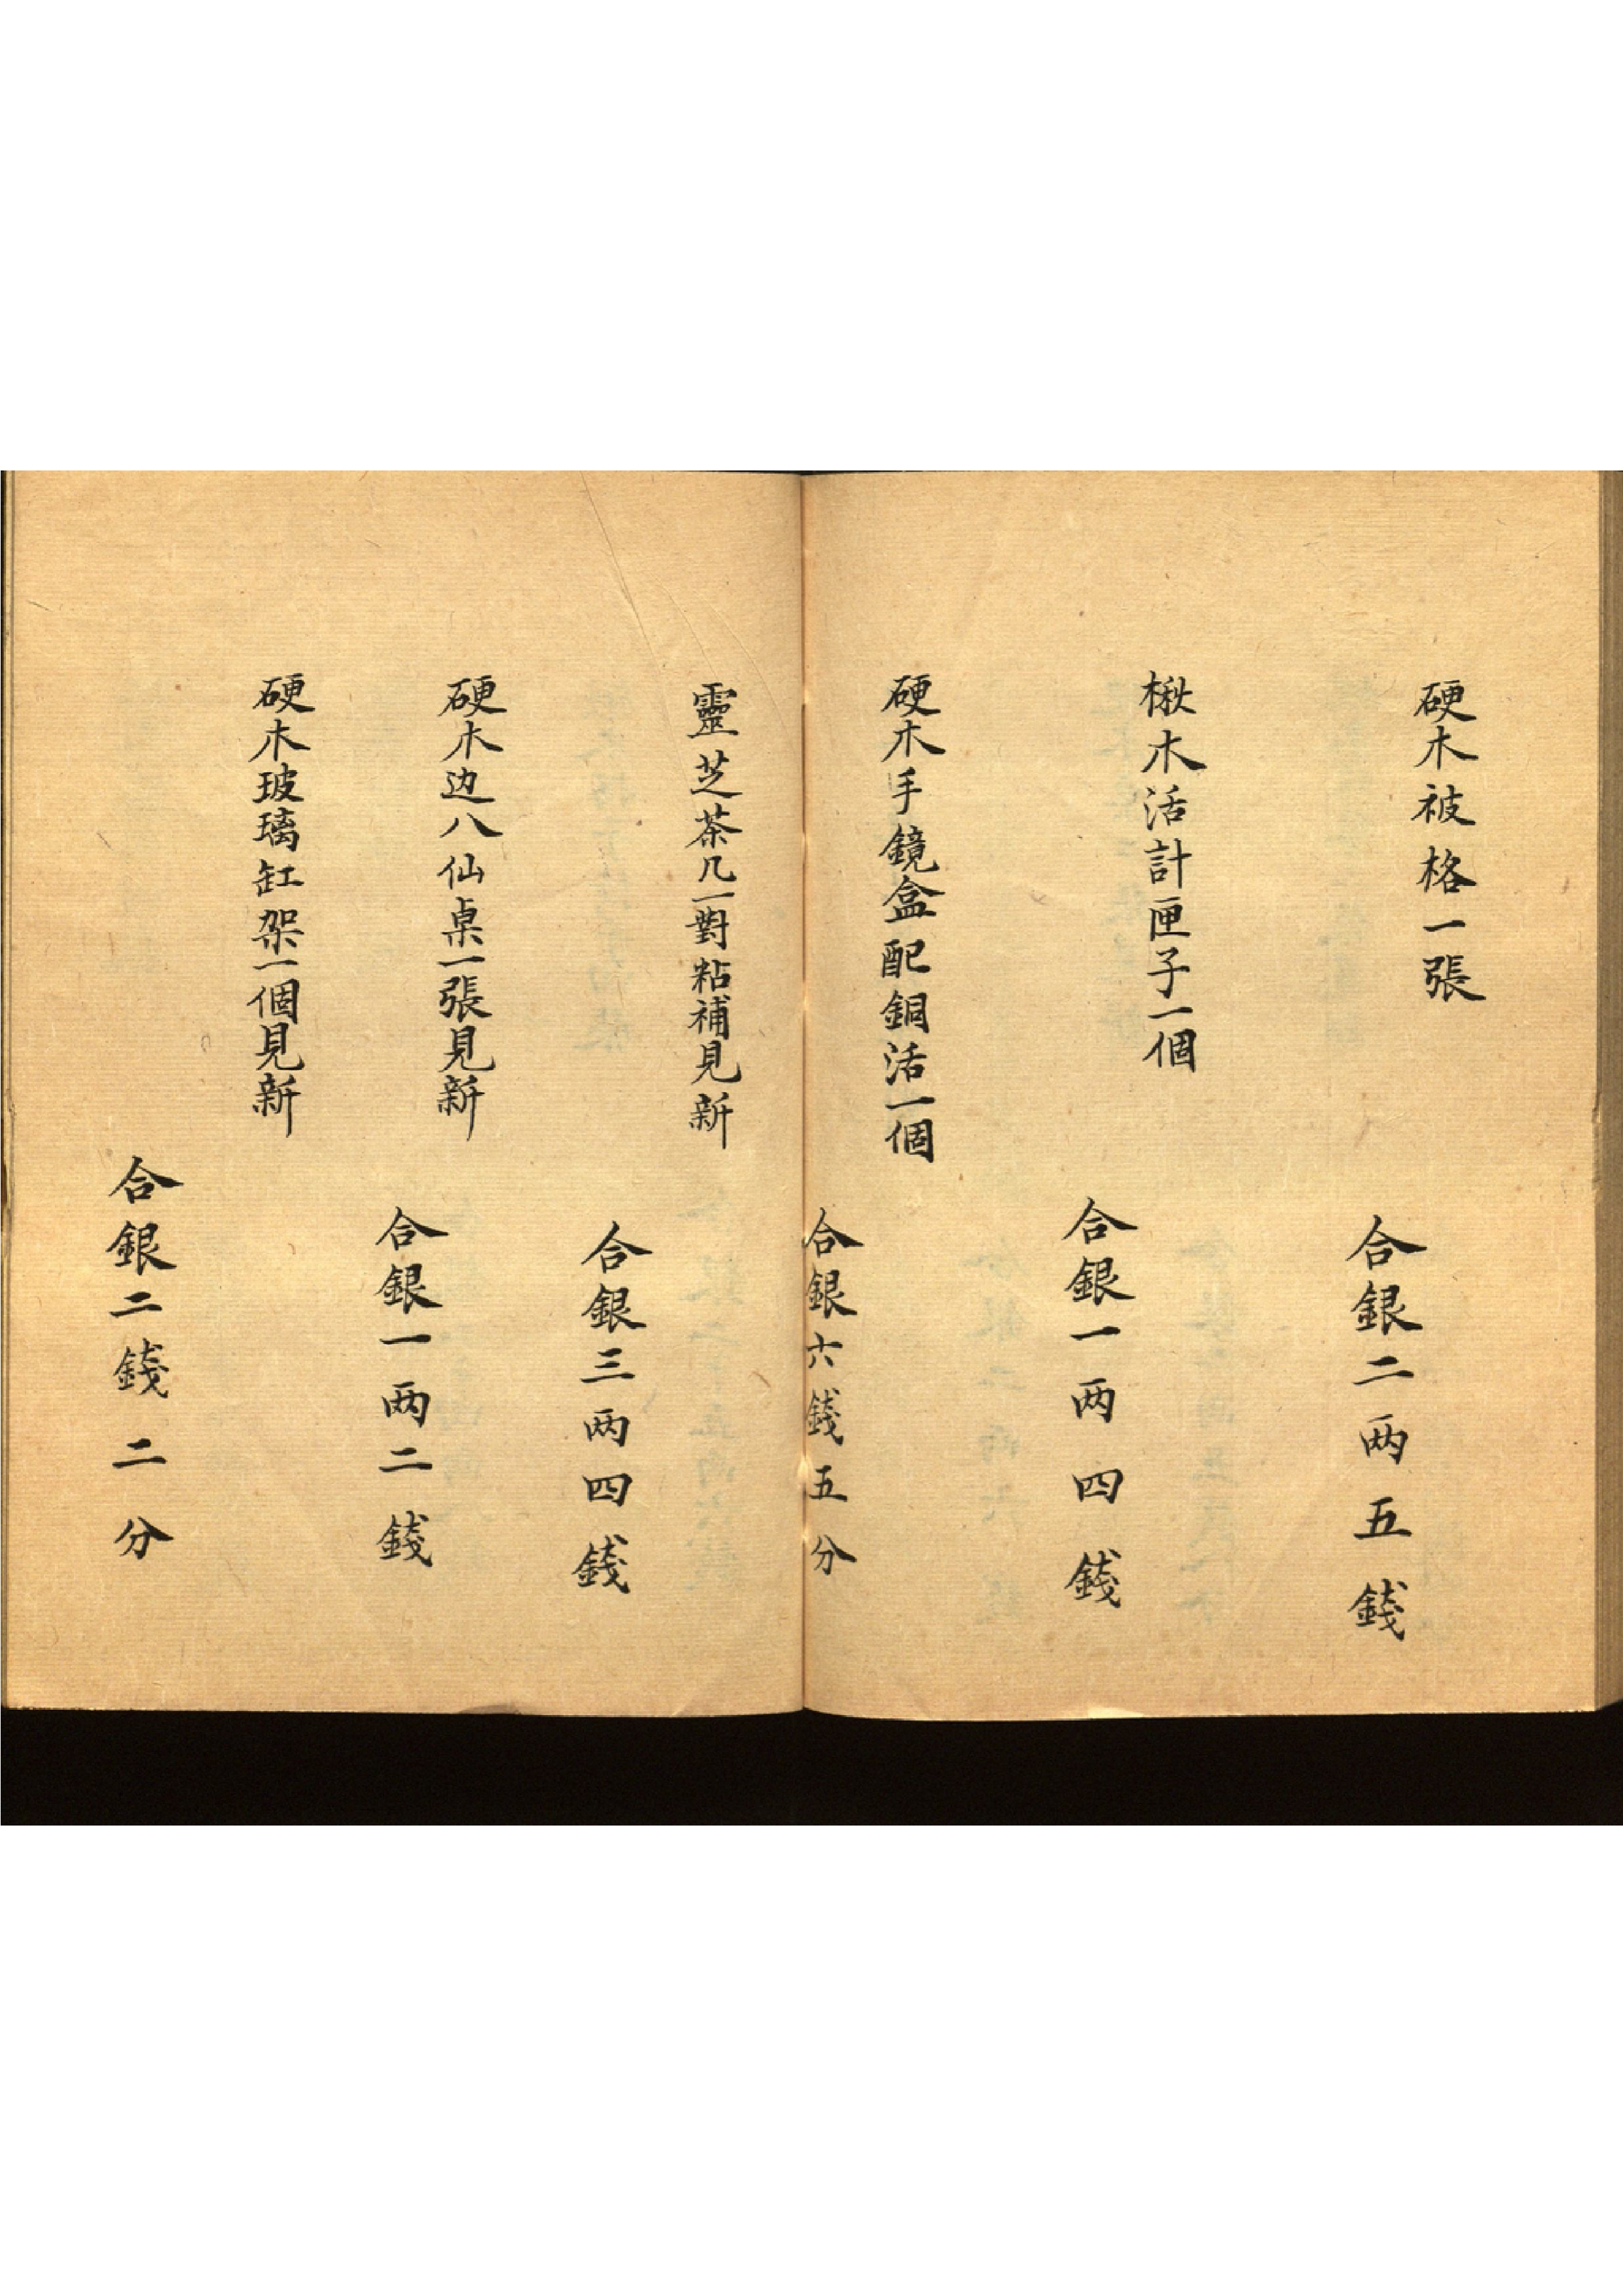 硬木被格一張
合銀二两五錢
楸木活計匣子一個
合銀一两四錢
硬木手鏡盒配銅活一個
合銀六錢五分
靈芝茶几一對粘補見新
合銀三两四錢
硬木边八仙桌一張見新
合銀一两二錢
硬木玻璃缸架一個見新
合銀二錢二分